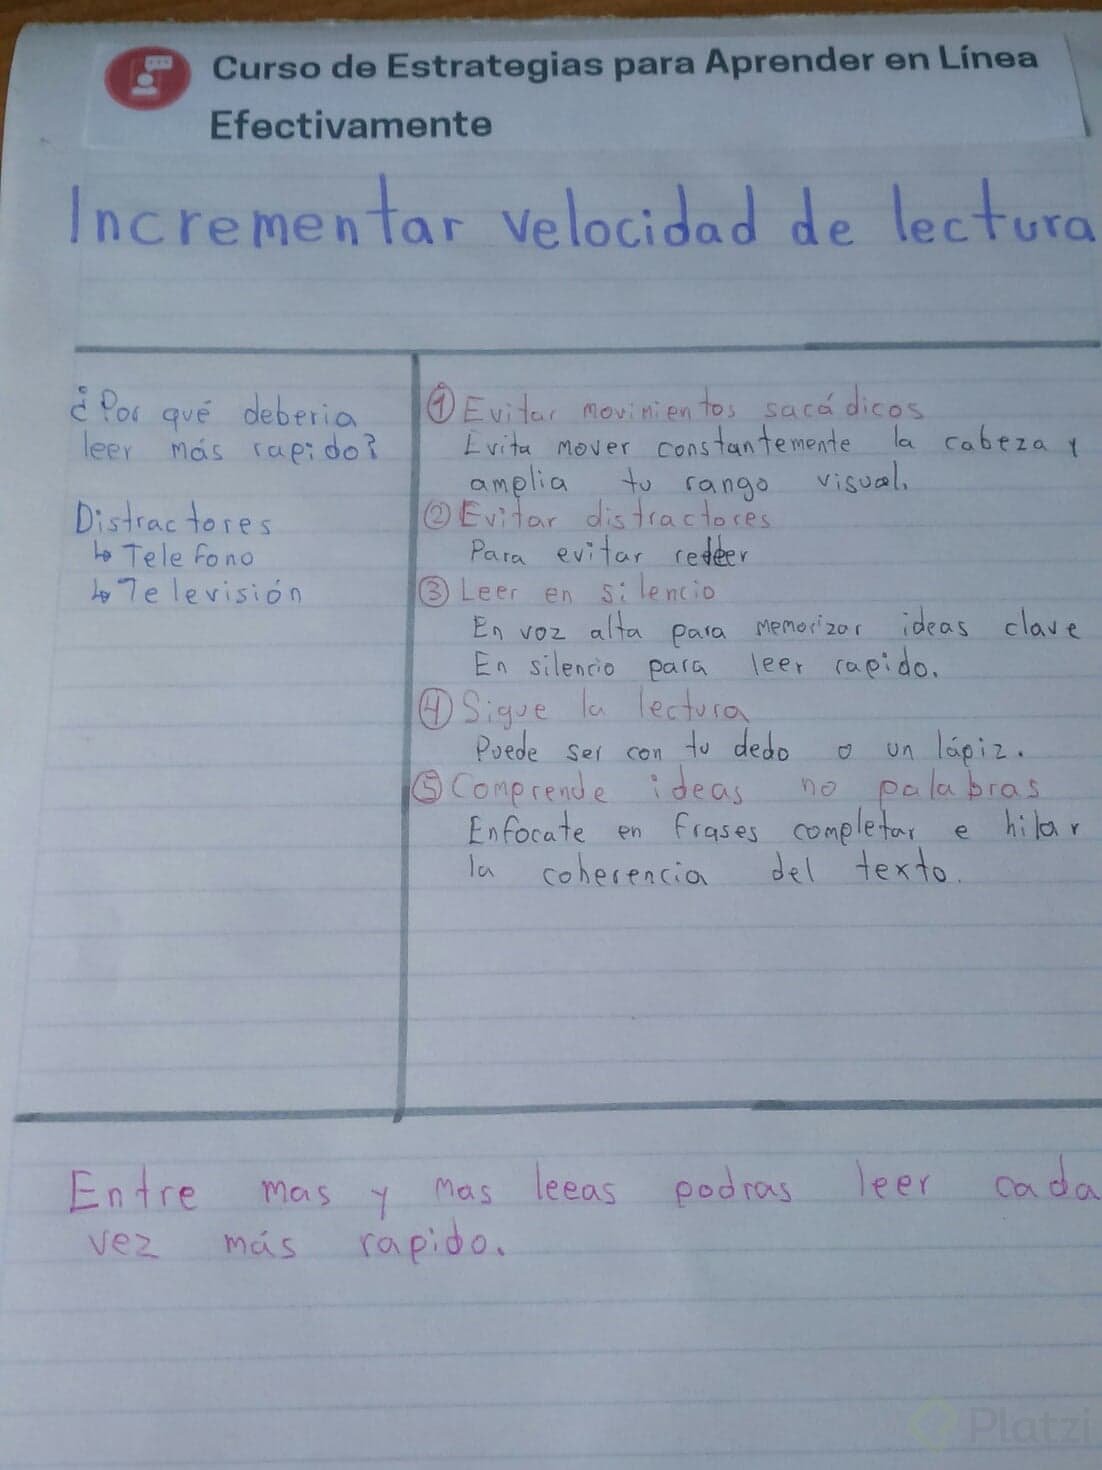 Curso de Estrategias para Aprender en Línea
Efectivamente
Incrementar velocidad de lectura
¿Por qué deberia
leer más rapido?
Distractores
↳ Telefono
↳ Televisión
① Evitar movimientos sacádicos
Evita mover constantemente la cabeza y
amplia tu rango visual.
② Evitar distractores
Para evitar releer
③ Leer en silencio
En voz alta para memorizar ideas clave
En silencio para leer rapido.
④ Sigue la lectura
Puede ser con tu dedo o un lápiz.
⑤ Comprende ideas no palabras
Enfocate en frases completar e hilar
la coherencia del texto.
Entre mas y mas leeas podras leer cada
vez más rapido.
Platzi